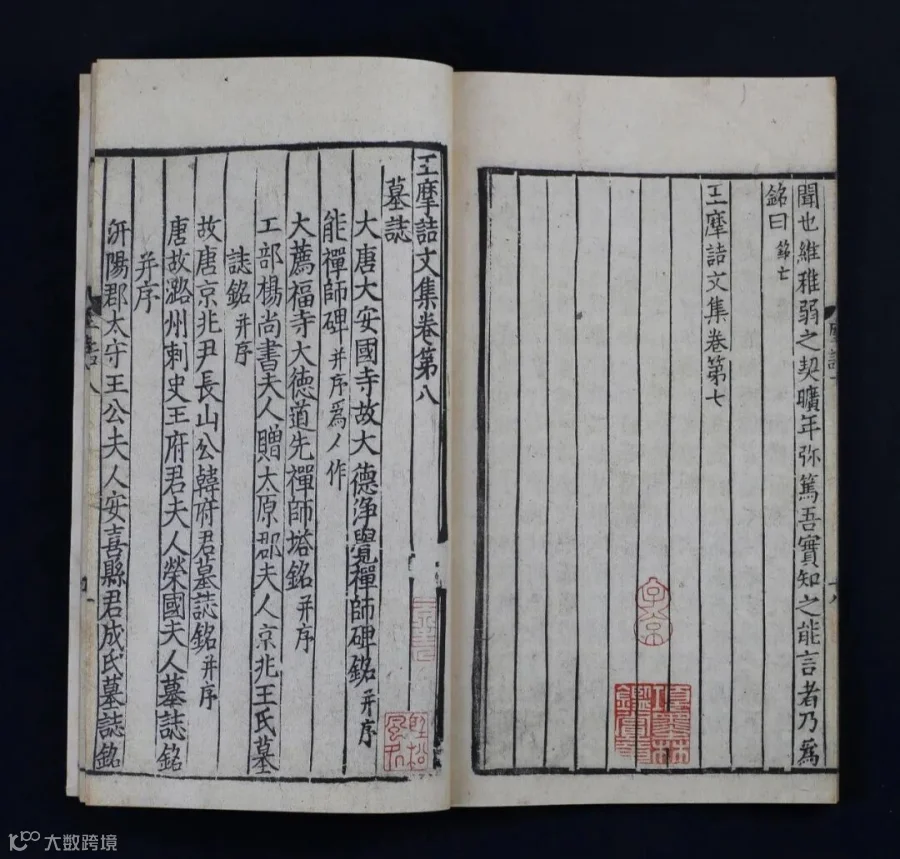 聞也維稚弱之契曠年弥篤吾實知之能言者乃為
銘曰 銘亡
王摩詰文集卷第七
子京
項墨林鑑賞章
王摩詰文集卷第八
墓誌
大唐大安國寺故大德淨覺禪師碑銘 并序
能禪師碑 并序為人作
大薦福寺大德道光禪師塔銘 并序
工部楊尚書夫人贈太原郡夫人京兆王氏墓
誌銘 并序
故唐京兆尹長山公韓府君墓誌銘 并序
唐故潞州刺史王府君夫人榮國夫人墓誌銘
并序
汧陽郡太守王公夫人安喜縣君成氏墓誌銘
大数跨境